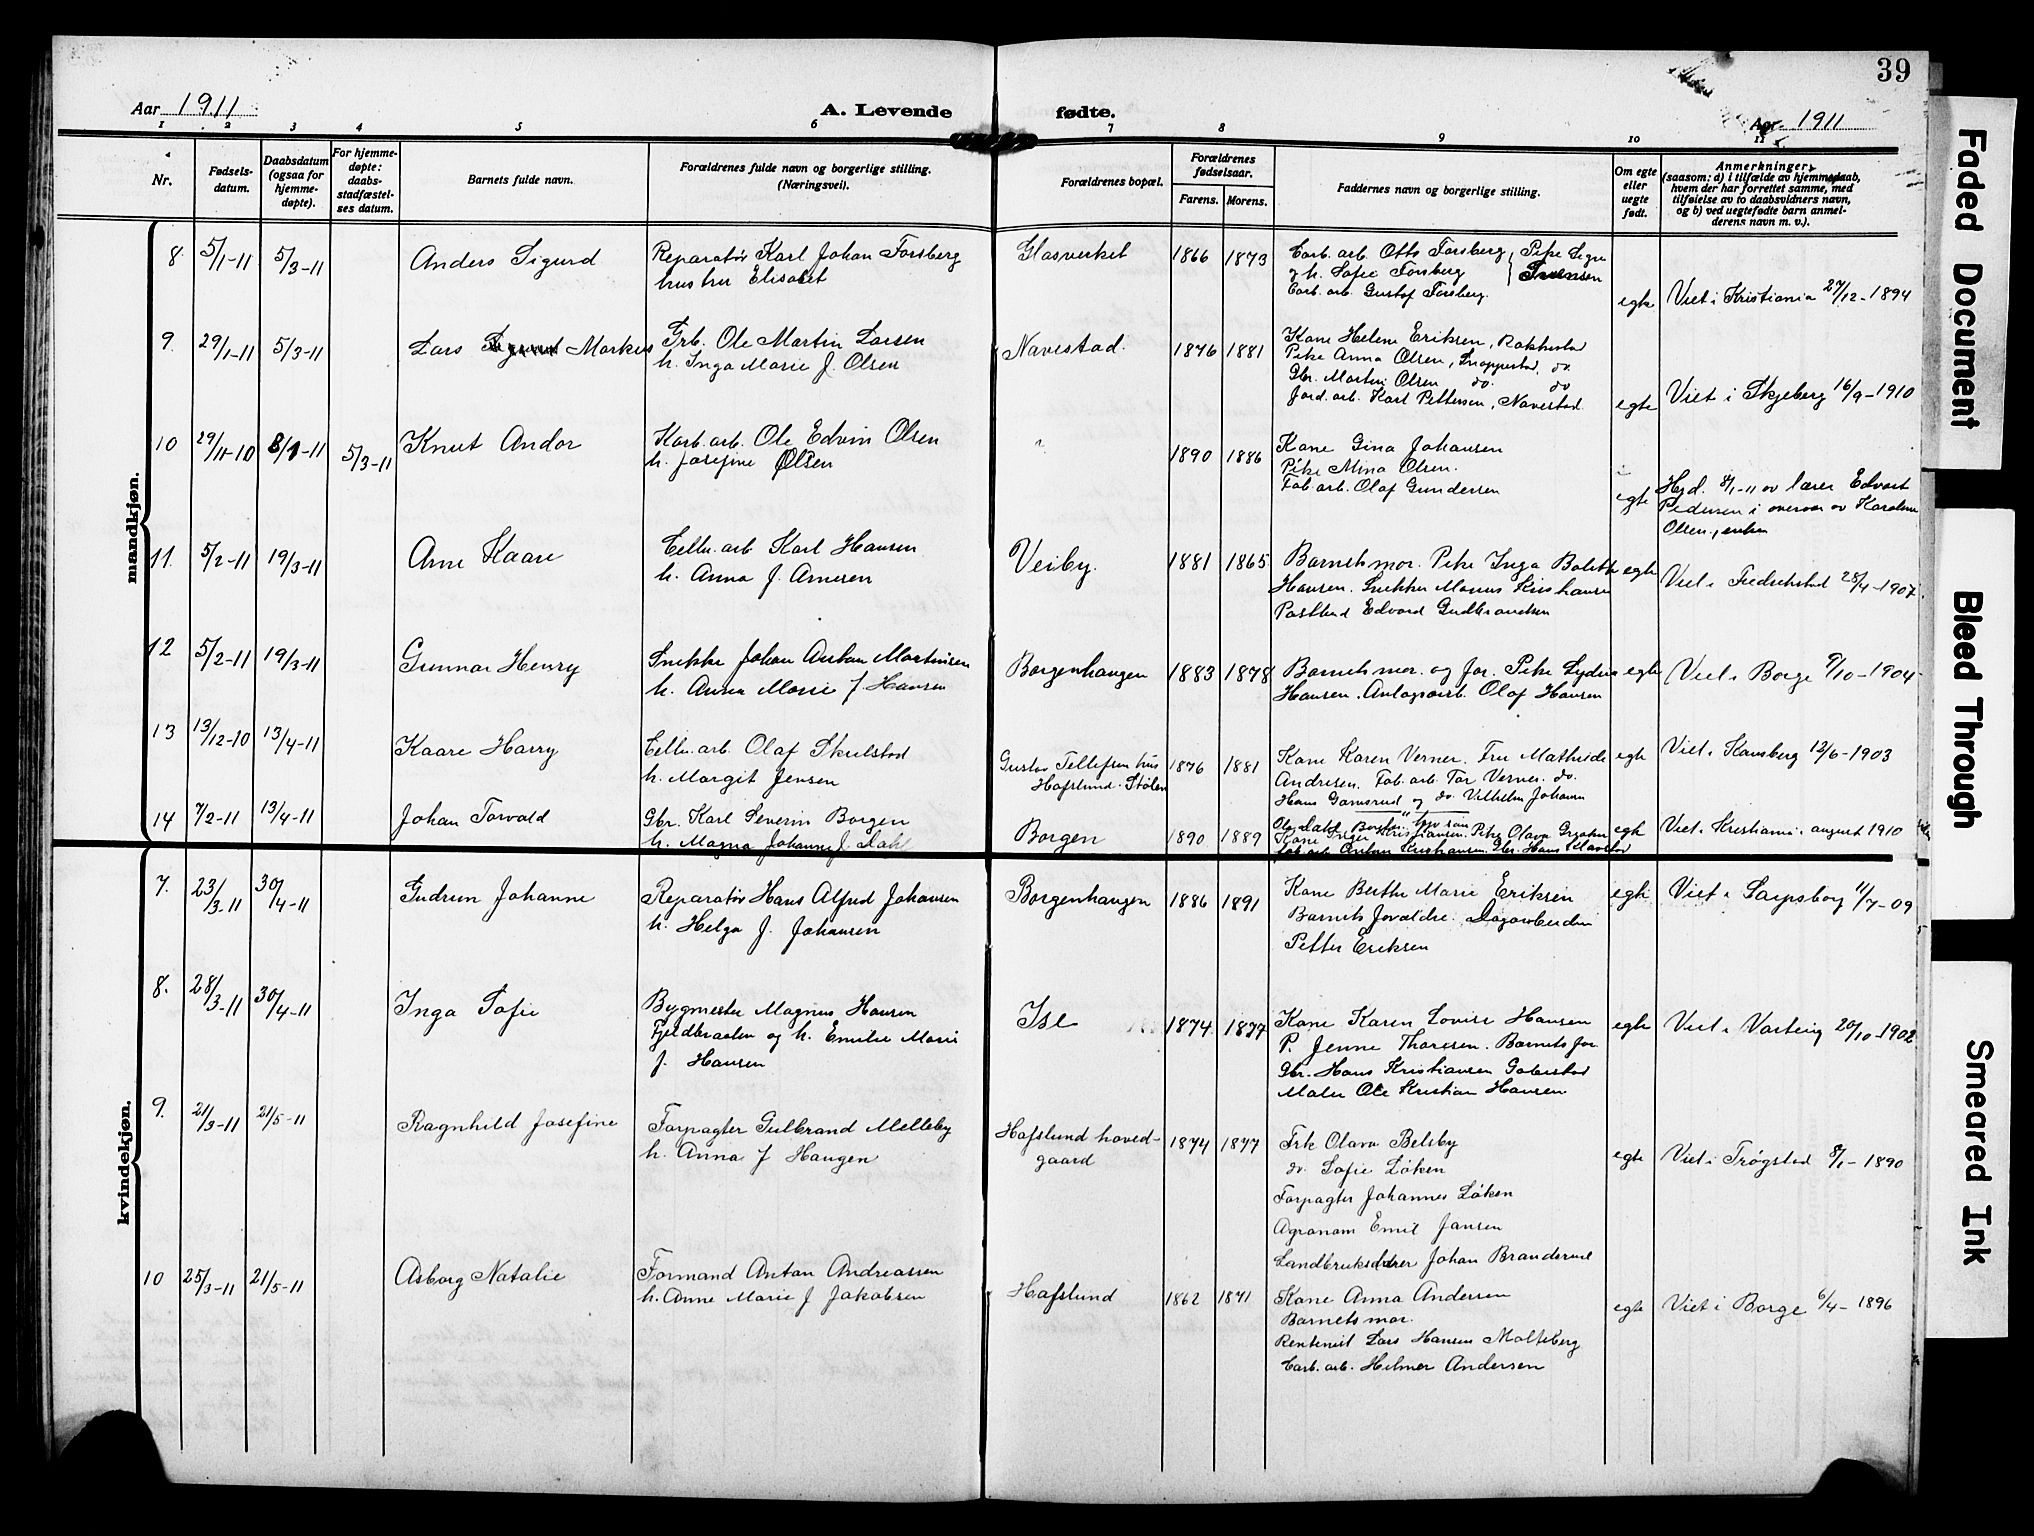 39
Aar 1911
A. Levende fødte.
Aar 1911
1 2 3 4 5 6 7 8 9 10 11
Nr.
Fødsels-
datum.
Daabsdatum
(ogsaa for
hjemme-
døpte).
For hjemme-
døpte:
daabs-
stadfæstel-
ses datum.
Barnets fulde navn.
Forældrenes fulde navn og borgerlige stilling.
(Næringsvei).
Forældrenes bopæl.
Forældrenes
fødselsaar.
Farens. Morens.
Faddernes navn og borgerlige stilling.
Om egte
eller
uegte
født.
Anmerkninger
(saasom: a) i tilfælde av hjemmedaab,
hvem der har forrettet samme, med
tilføielse av to daabsvidners navn,
og b) ved uegtefødte barn anmel-
derens navn m. v.).
mandkjøn.
8. 5/1-11 5/3-11 Anders Sigurd
Reparatør Karl Johan Forsberg
hustru Elisabet
Glasverket 1866 1873
Carb. arb. Otto Forsberg, Pike Signe
og h. Sofie Forsberg
Carb. arb. Gustaf Forsberg.
egte Viet i Kristiania 27/12-1894
9. 29/1-11 5/3-11 Lars Markus
Grb. Ole Martin Larsen
h. Inga Marie f. Olsen
Navestad. 1876 1881
Kone Helene Eriksen, Rakkestad
Pike Anna Olsen, do.
Gbr. Martin Olsen do. do
Jord. arb. Karl Pettersen, Navestad.
egte Viet i Skjeberg 16/9-1910
10 29/11-10 8/1-11 5/3-11 Knut Andor
Karb. arb. Ole Edvin Olsen
h. Josefine Olsen
" 1890 1886
Kone Gina Johansen
Pike Mina Olsen.
Fab. arb. Olaf Gundersen
egte Hjd. 8/1-11 av lærer Edvart
Pedersen i overvær av
Olsen, enke
11. 5/2-11 19/3-11 Arne Kaare
Cellu. arb. Karl Hansen
h. Anna f. Arnesen
Veiby. 1881 1865
Barnets mor. Pike Inga Bolette
Hansen. Snekker Marius Kristiansen
Postbud Edvard Gudbrandsen
egte Viet i Fredrikstad 28/4-1907.
12 5/2-11 19/3-11 Gunnar Henry
Snekke Johan Anton Martinsen
h. Anna Marie f Hansen
Borgenhaugen 1883 1878
Barnets mor. og far. Pike Lydia
Hansen. Olaf Hansen
egte Viet i Borge 9/10-1904
13 13/12-10 13/4-11 Kaare Harry
Cellu. arb. Olaf Skulstad
h. Margit Jensen
Gustav Tellefsen hus
Hafslund. Stølen
1876 1881
Kone Karen Verner. Fru Mathilde
Andresen. Fab. arb. Tor Verner. do.
Hans og do. Vilhelm Johansen
egte Viet i Kongsberg 12/6-1903
14 7/2-11 13/4-11 Johan Torvald
Gbr. Karl Severin Borgen
h. Magna Johanne f. Dahl
Borgen 1890 1889
egte Viet i Kristiania august 1910
kvindekjøn.
7. 23/3-11 30/4-11 Gudrun Johanne
Reparatør Hans Alfred Johansen
h. Helga f. Johansen
Borgenhaugen 1886 1891
Kone Berthe Marie Eriksen
Barnets forældre. Dagarbeider
Petter Eriksen
egte Viet i Sarpsborg 11/7-09
8. 28/3-11 30/4-11 Inga Sofie
Bygmester Magnus Hansen
Fjeldbraaten og h. Emilie Marie
f. Hansen
Ise 1874 1877
Kone Karen Lovise Hansen
P. Jenne Thoresen. Barnets far
Gbr. Hans Kristiansen
Maler Ole Kristian Hansen
egte Viet i Varteig 20/10-1902
9. 21/3-11 21/5-11 Ragnhild Josefine
Forpagter Gulbrand Melleby
h. Anna f Haugen
Hafslund hoved-
gaard
1874 1877
Frk Olava Belsby
do. Sofie Løken
Forpagter Johannes Løken
Agronom Emil Jansen
Landbrukslærer Johan Brandsrud
egte Viet i Trøgstad 8/1-1890
10 25/3-11 21/5-11 Asborg Natalie
Formand Anton Andreassen
h. Anne Marie f Jakobsen
Hafslund 1862 1871
Kone Anna Andersen
Barnets mor.
Rentenist Lars Hansen Molteberg
Carb. arb. Helmer Andersen
egte Viet i Borge 6/4-1896
Faded Document
Bleed Through
Smeared Ink